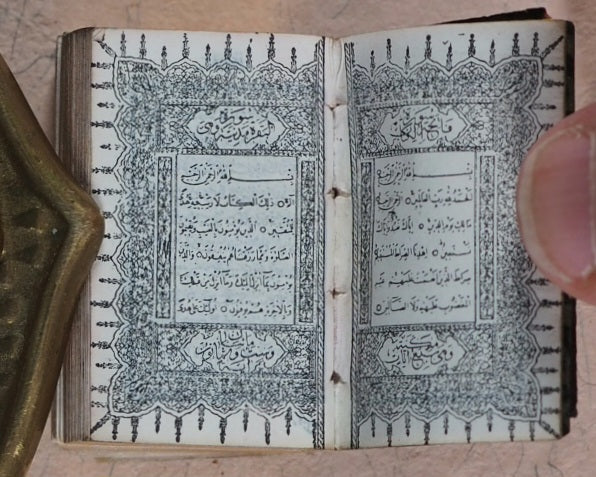 فاتحة الكتاب
بسم الله الرحمن الرحيم
الحمد لله رب العالمين
مالك يوم الدين ○ إياك نعبد وإياك
نستعين ○ اهدنا الصراط المستقيم
صراط الذين أنعمت عليهم غير
المغضوب عليهم ولا الضالين ○
وهي سبع آيات
سورة
البقرة مدنية وهي
بسم الله الرحمن الرحيم
الم ○ ذلك الكتاب لا ريب فيه هدى
للمتقين ○ الذين يؤمنون بالغيب ويقيمون
الصلوة ومما رزقناهم ينفقون ○ والذين
يؤمنون بما أنزل إليك وما أنزل من قبلك
وبالآخرة هم يوقنون ○ أولئك على هدى
مائتان
وست وثمانون